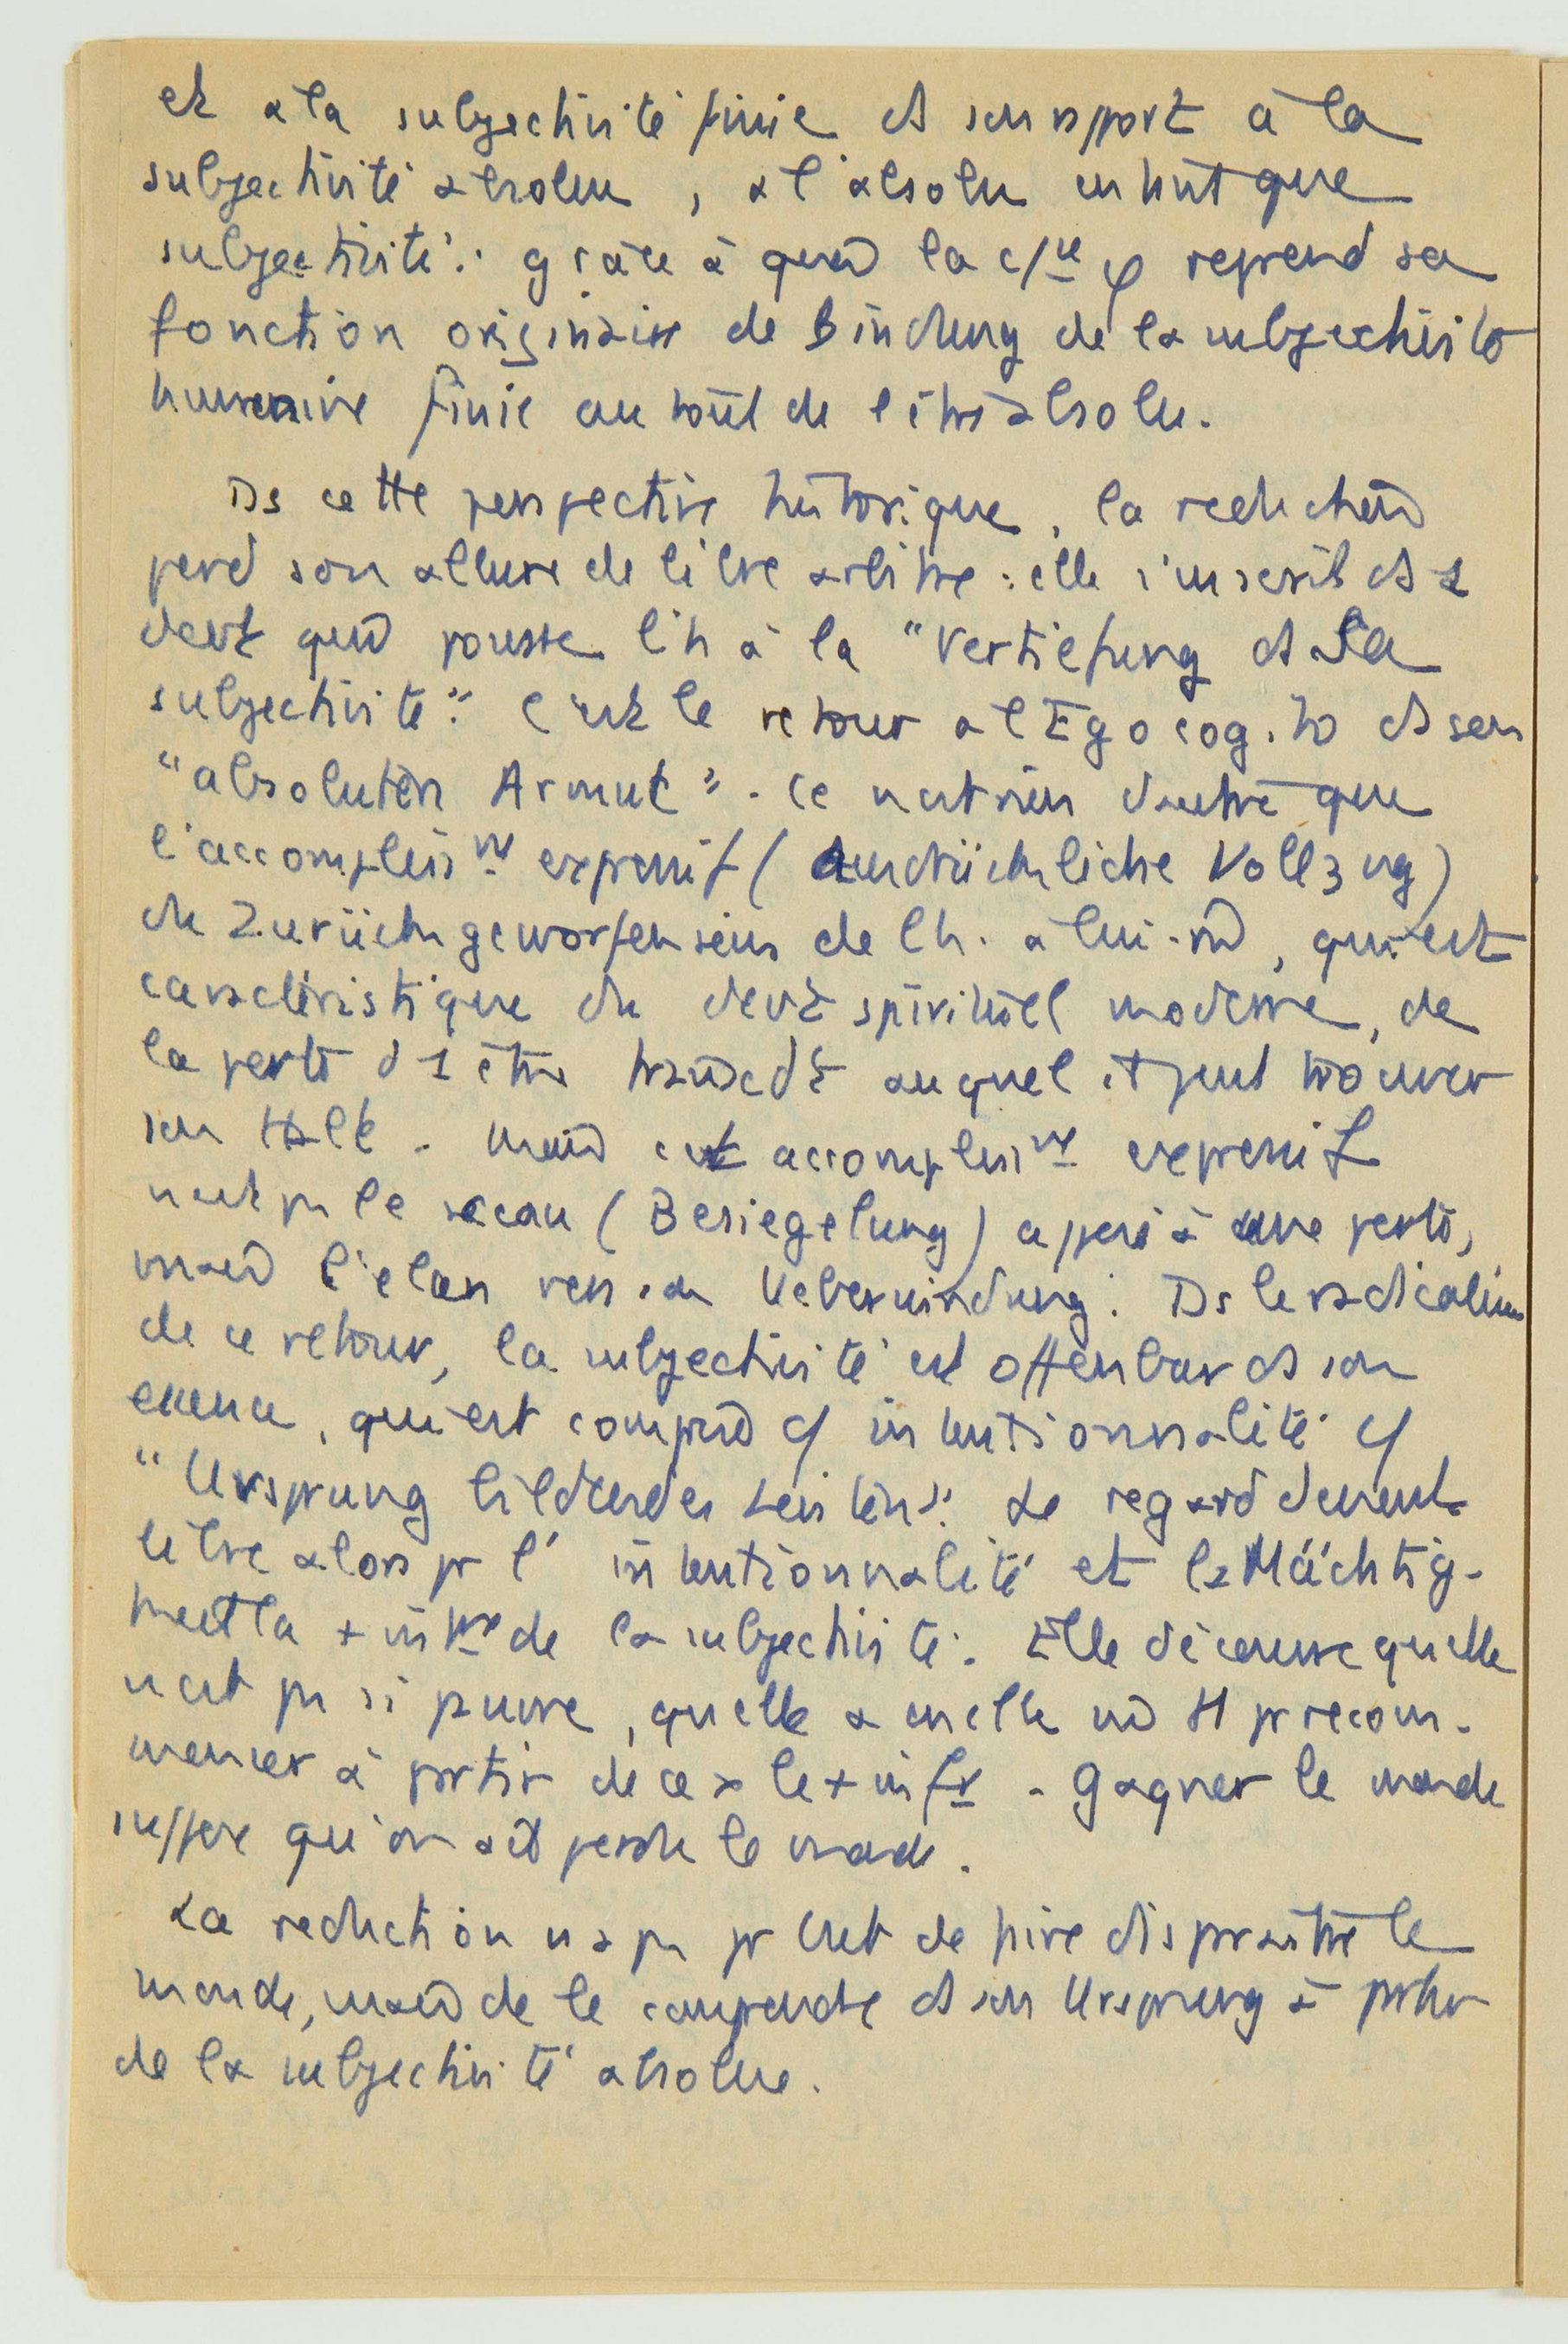 et à la subjectivité finie ds son rapport à la
subjectivité absolue, à l'absolu en tant que
subjectivité": grâce à quoi la c/ce φ reprend sa
fonction originaire de Bindung de la subjectivité
humaine finie au tout de l'être absolu.
Ds cette perspective historique, la reduction
perd son allure de libre arbitre: elle s'inscrit ds 1
devt qui pousse l'h à la "Vertiefung ds la
subjectivité". C'est le retour à l'Ego cogito ds son
"absoluten Armut". Ce n'est rien d'autre que
l'accompliss nt expressif (ausdrückliche Vollzug)
du Zurückgeworfenseins de l'h. à lui-m, qui est
caractéristique du devt spirituel moderne, de
la perte d'1 être transcdt auquel il peut trouver
son Halt. Mais cet accompliss nt expressif
n'est pas le sceau (Besiegelung) apposé à une perte,
mais l'élan vers sa Ueberwindung. Ds le radicalisme
de ce retour, la subjectivité est offenbar ds son
essence, qui est compris c/ intentionnalité c/
"Ursprung bildendes Leisten". Le regard devient
libre alors pr l'intentionnalité et la Mächtig-
keit la + intme de la subjectivité. Elle découvre qu'elle
n'est pas si pauvre, qu'elle a en elle
mencer à partir de ce Gagner le monde
suppose qu'on ait perdu le monde.
La reduction n'a pas pr but de faire disparaître le
monde, mais de le comprendre ds son Ursprung à partir
de la subjectivité absolue.